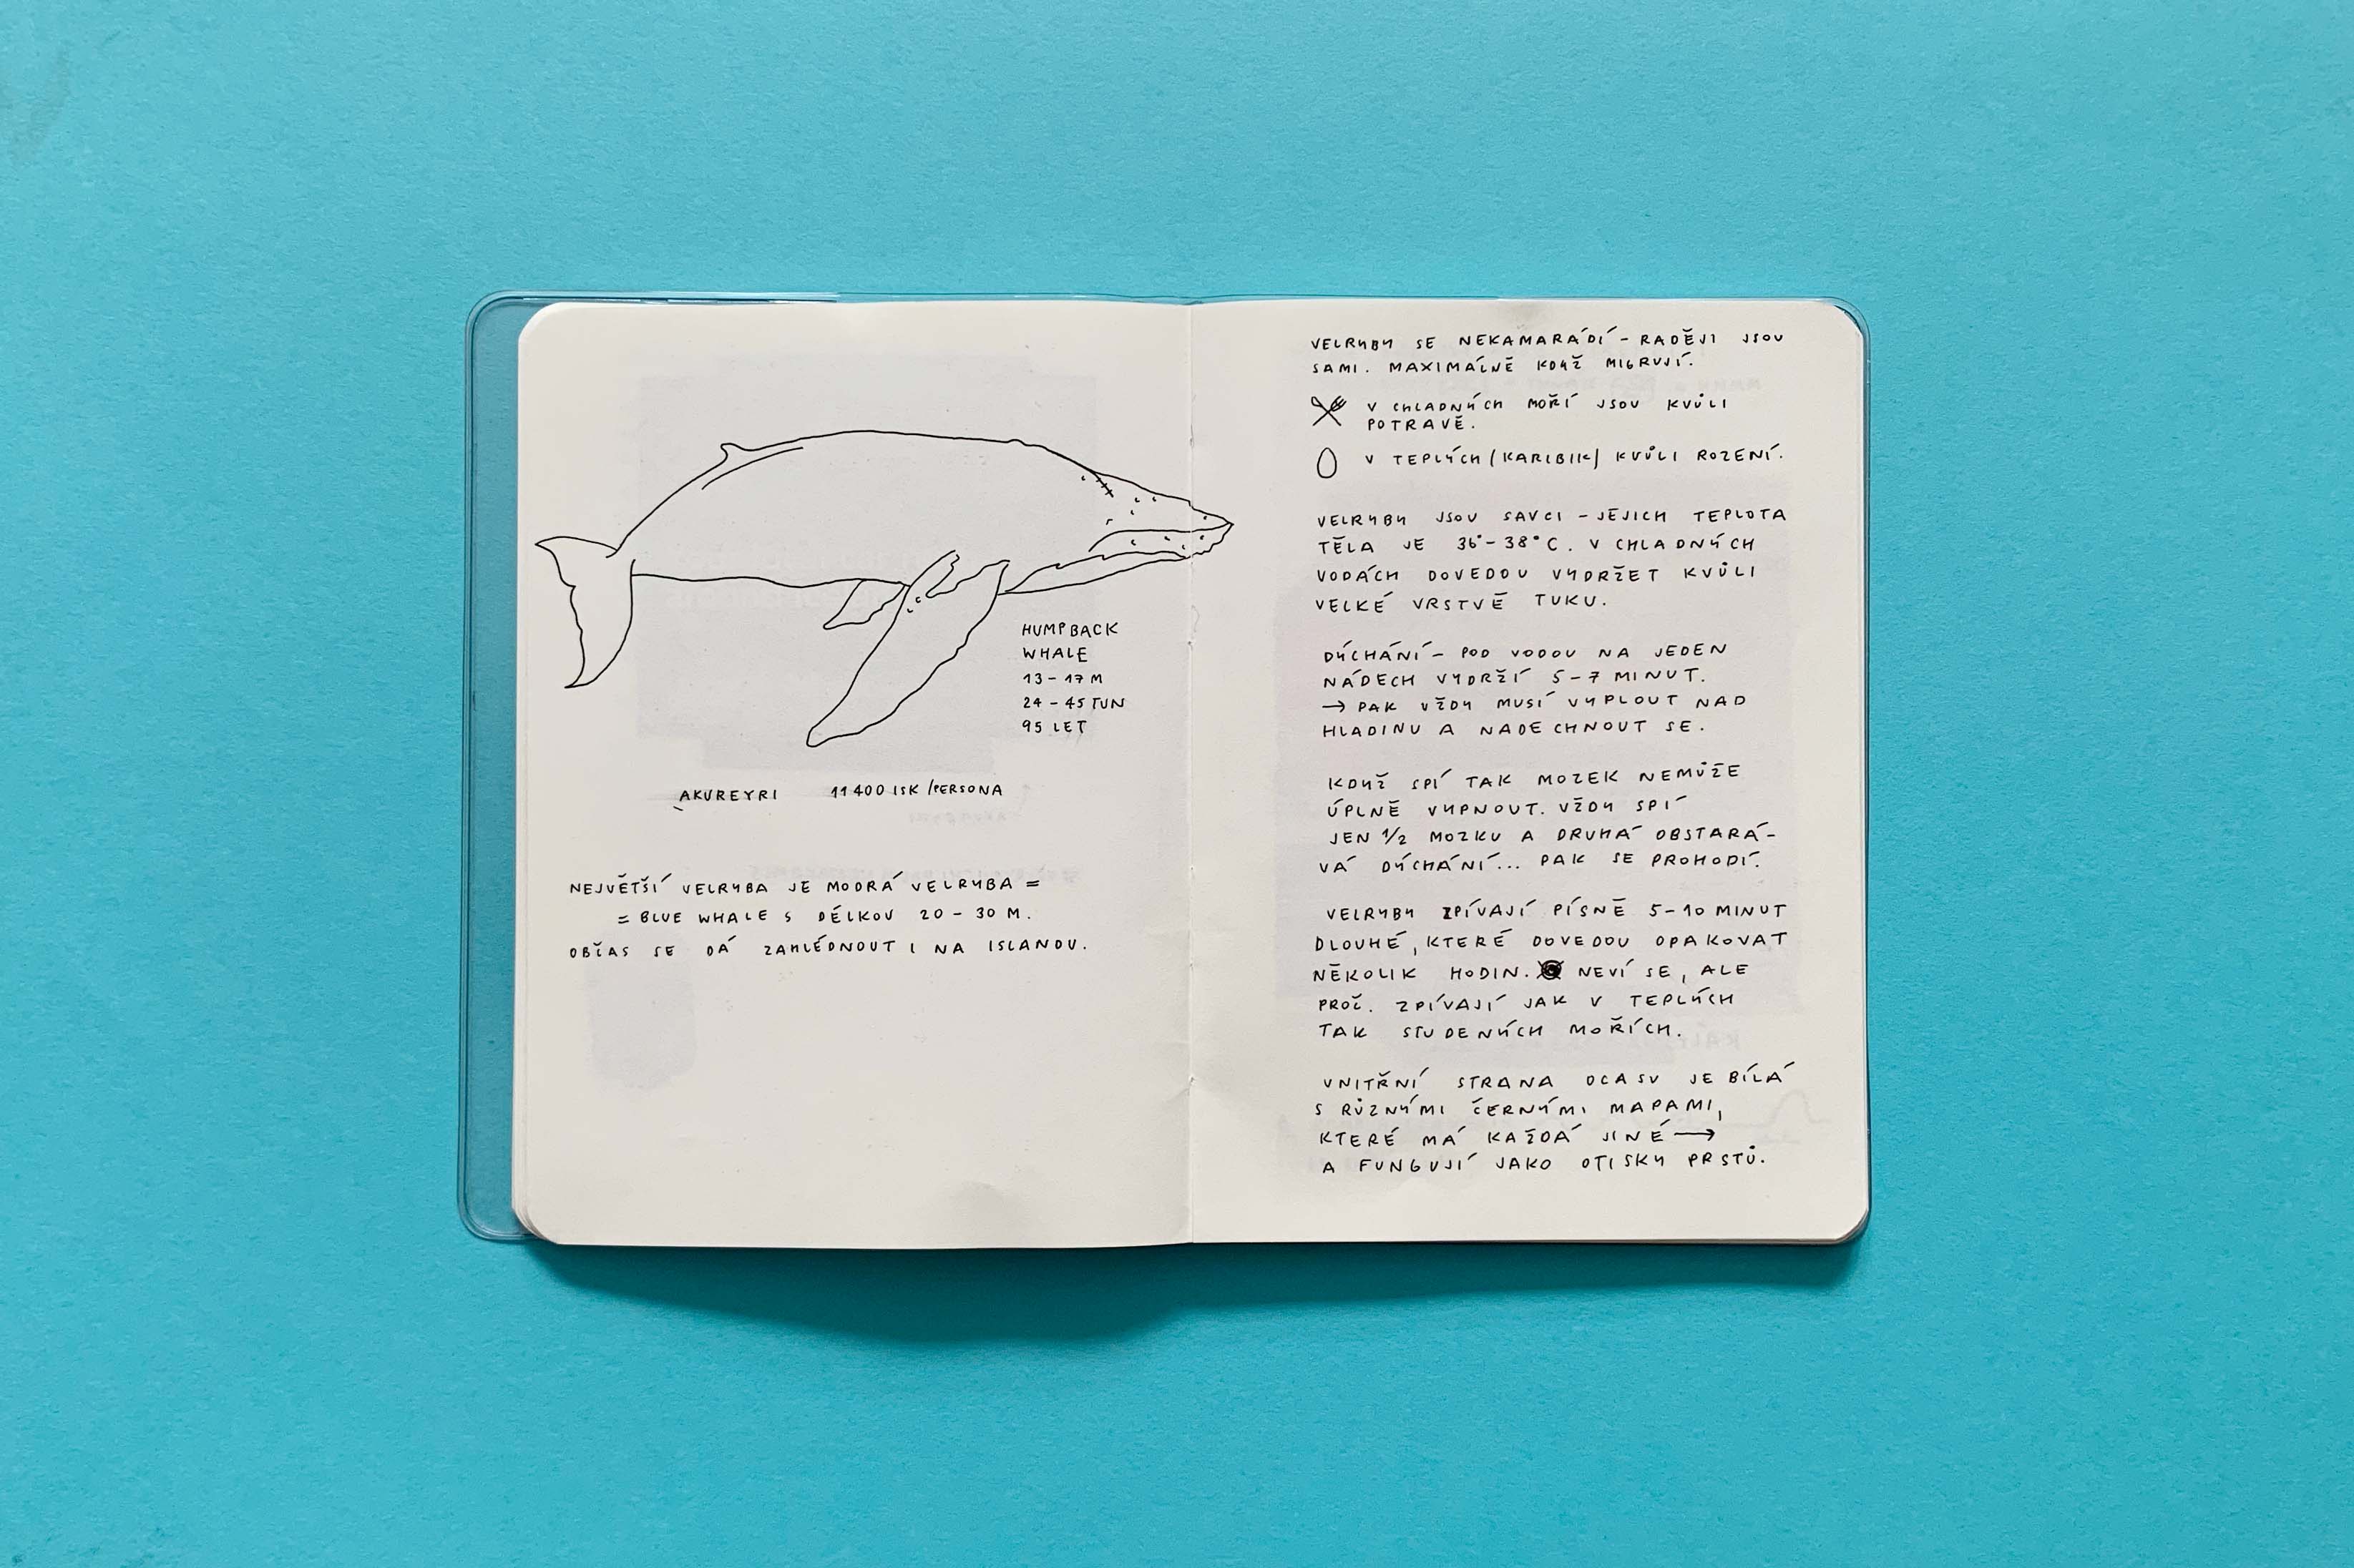 HUMPBACK
WHALE
13 - 17 M
24 - 45 TUN
95 LET
AKUREYRI 11400 ISK /PERSONA
NEJVĚTŠÍ VELRYBA JE MODRÁ VELRYBA =
= BLUE WHALE S DÉLKOU 20 - 30 M.
OBČAS SE DÁ ZAHLÉDNOUT I NA ISLANDU.
VELRYBY SE NEKAMARÁDÍ - RADĚJI JSOU
SAMI. MAXIMÁLNĚ KDYŽ MIGRUJÍ.
V CHLADNÝCH MOŘÍ JSOU KVŮLI
POTRAVĚ.
V TEPLÝCH (KARIBIK) KVŮLI ROZENÍ.
VELRYBY JSOU SAVCI - JEJICH TEPLOTA
TĚLA JE 36° - 38°C. V CHLADNÝCH
VODÁCH DOVEDOU VYDRŽET KVŮLI
VELKÉ VRSTVĚ TUKU.
DÝCHÁNÍ - POD VODOU NA JEDEN
NÁDECH VYDRŽÍ 5 - 7 MINUT.
→ PAK VŽDY MUSÍ VYPLOUT NAD
HLADINU A NADECHNOUT SE.
KDYŽ SPÍ TAK MOZEK NEMŮŽE
ÚPLNĚ VYPNOUT. VŽDY SPÍ
JEN 1/2 MOZKU A DRUHÁ OBSTARÁ-
VÁ DÝCHÁNÍ... PAK SE PROHODÍ.
VELRYBY ZPÍVAJÍ PÍSNĚ 5-10 MINUT
DLOUHÉ, KTERÉ DOVEDOU OPAKOVAT
NĚKOLIK HODIN. NEVÍ SE, ALE
PROČ. ZPÍVAJÍ JAK V TEPLÝCH
TAK STUDENÝCH MOŘÍCH.
VNITŘNÍ STRANA OCASU JE BÍLÁ
S RŮZNÝMI ČERNÝMI MAPAMI,
KTERÉ MÁ KAŽDÁ JINÉ →
A FUNGUJÍ JAKO OTISKY PRSTŮ.